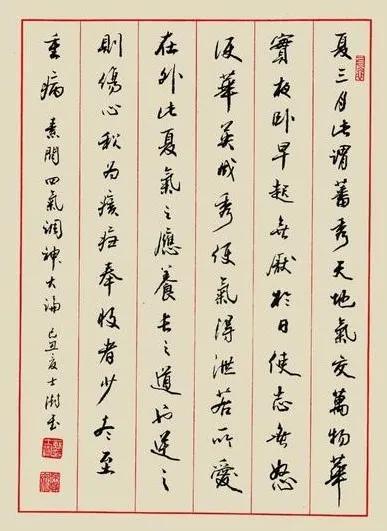 夏三月此謂蕃秀天地氣交萬物華
實夜卧早起無厭於日使志無怒
使華英成秀使氣得泄若所愛
在外此夏氣之應養長之道也逆之
則傷心秋為痎瘧奉收者少冬至
重病 素問四氣調神大論 己丑夏士澍書